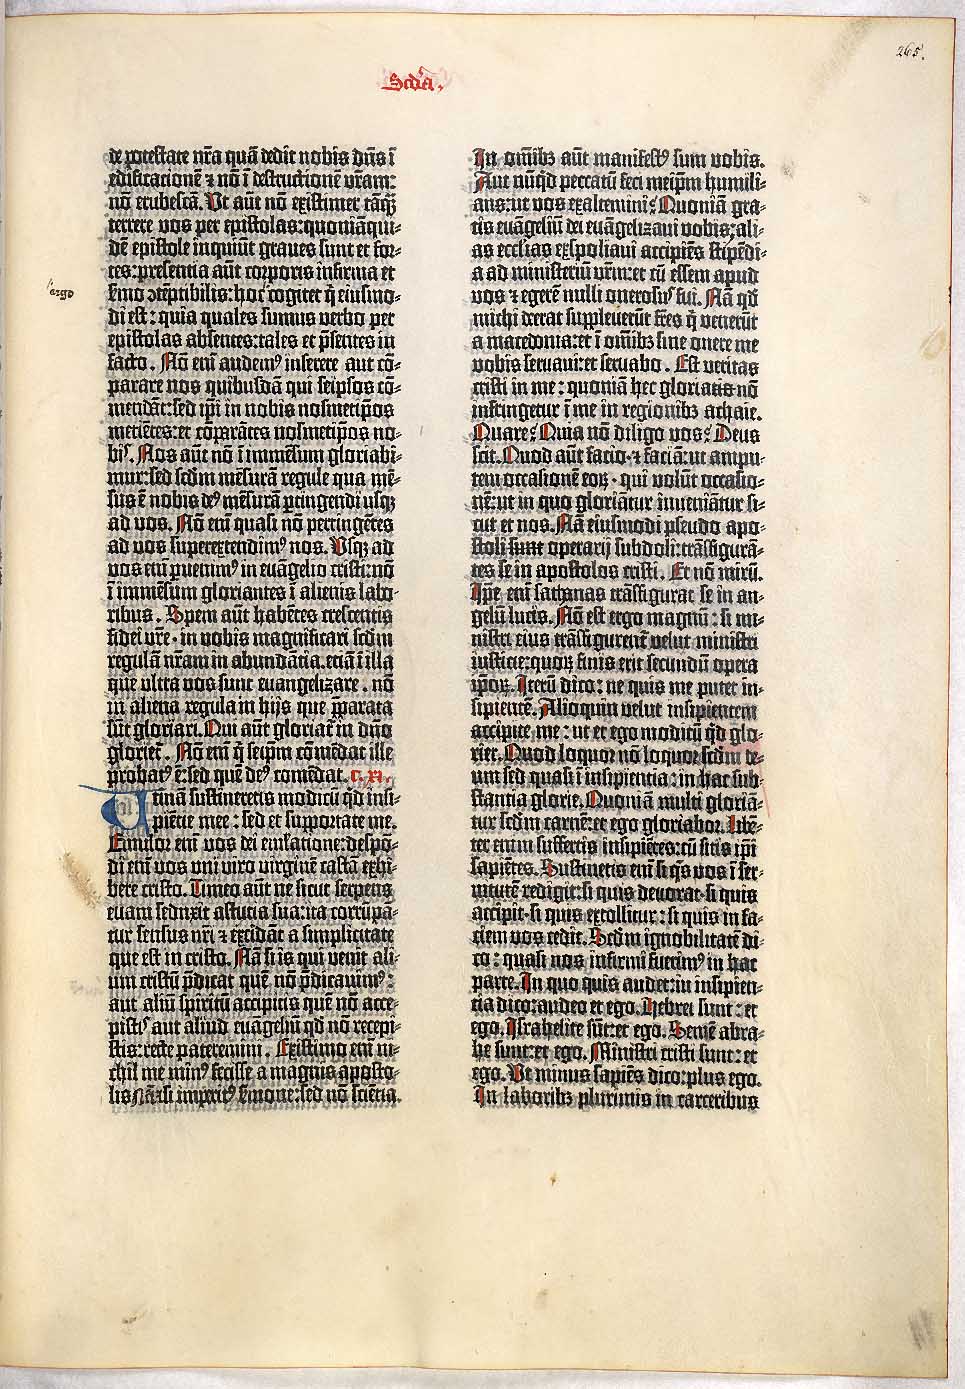 265.
Scd'a.
de p̄otestate nr̄a quā dedit nobis dn̄s ī
edificationē ⁊ nō ī destructionē vr̄am:
nō erubescā. Ut aūt nō existimer tāq̄ꝫ
terrere vos per epistolas: quoniā qui-
dē epistole inquiūt graues sunt et for-
tes: presentia aūt corporis infirma et
sermo ꝯtēptibilis: hoc cogitet q̄ eiusmo-
argo
di est: quia quales sumus verbo per
epistolas absentes: tales et p̄sentes in
facto. Nō enī audemꝰ inserere aut cō-
parare nos quibusdā qui seip̄sos cō-
mendāt: sed ip̄i in nobis nosmetip̄os
metiētes: et cōparātes nosmetip̄os no-
bis. Nos aūt nō ī immēsum gloriabi-
mur: sed scd̄m mēsurā regule qua mē-
sus ē nobis deꝰ mēsurā ꝑtingendi usqꝫ
ad vos. Nō enī quasi nō pertingētes
ad vos superextendimꝰ nos. Usqꝫ ad
vos enī ꝑuenimꝰ in euāgelio cristi: nō
ī immēsum gloriantes ī alienis labo-
ribus. Spem aūt habētes crescentis
fidei vr̄e · in vobis magnificari scd̄m
regulā nr̄am in abundātia. etiā ī illa
que ultra vos sunt euangelizare. nō
in aliena regula in hijs que p̄parata
sūt gloriari. Qui aūt gloriat̄ in dn̄o
gloriet̄. Nō enī q̄ seip̄m cōmēdat ille
probatꝰ ē: sed quē deꝰ comēdat. c. xi.
Utinā sustineretis modicū q̄d insi-
piētie mee: sed et supportate me.
Emulor enī vos dei emlatione: despō-
di enī vos uni viro virginē castā exhi-
bere cristo. Timeo aūt ne sicut serpens
euam seduxit astutia sua: ita corrupā-
tur sensus nr̄i ⁊ excidāt a simplicitate
que est in cristo. Nā si is qui venit ali-
um cristū p̄dicat quē nō p̄dicauimꝰ:
aut aliū spiritū accipitis quē nō acce-
pistis aut aliud euāgeliū qd̄ nō recepi-
stis: recte pateremini. Existimo enī ni-
chil me minꝰ fecisse a magnis aposto-
lis Nā si imperitꝰ sermone: sed nō sciētia.
In om̄ibꝫ aūt manifestꝰ sum vobis.
Aut nūq̄d peccatū feci meip̄m humili-
ans: ut vos exaltemini? Quoniā gra-
tis euāgeliū dei euāgelizaui vobis: ali-
as ecclias exspoliaui accipiēs stipēdi-
a ad ministeriū vr̄m: et cū essem apud
vos ⁊ egerē nulli onerosus fui. Nā qd̄
michi deerat suppleuerūt fr̄es q̄ venerūt
a macedonia: et ī om̄ibꝫ sine onere me
vobis seruaui: et seruabo. Est veritas
cristi in me: quoniā hec gloriatio nō
infringetur ī me in regionibꝫ achaie.
Quare? Quia nō diligo vos? Deus
scit. Quod aūt facio · ⁊ faciā: ut ampu-
tem occasionē eoꝝ · qui volūt occasio-
nē: ut in quo gloriātur inueniātur si-
cut et nos. Nā eiusmodi pseudo apo-
stoli sunt operarij subdoli: trāsfigurā-
tes se in apostolos cristi. Et nō mirū.
Ip̄e enī sathanas trāsfigurat se in an-
gelū lucis. Nō est ergo magnū: si mi-
nistri eius trāsfigurent̄ velut ministri
iusticie: quoꝝ finis erit secundū opera
ip̄oꝝ. Iterū dico: ne quis me putet in-
sipientē. Alioquin velut insipientem
accipite me: ut et ego modicū q̄d glo-
rier. Quod loquor nō loquor scd̄m de-
um sed quasi ī insipientia: in hac sub-
stantia glorie. Quoniā multi gloriā-
tur scd̄m carnē: et ego gloriabor. Libē-
ter enim suffertis insipiētes: cū sitis ip̄i
sapiētes. Sustinetis enī si q̄s vos ī ser-
uitutē redigit: si quis deuorat · si quis
accipit · si quis extollitur: si quis in fa-
ciem vos cedit. Scd̄m ignobilitatē di-
co: quasi nos infirmi fuerimꝰ in hac
parte. In quo quis audet: in insipien-
tia dico: audeo et ego. Hebrei sunt: et
ego. Israhelite sūt: et ego. Semē abra-
he sunt: et ego. Ministri cristi sunt: et
ego. Ut minus sapiēs dico: plus ego.
In laboribꝫ plurimis in carceribus